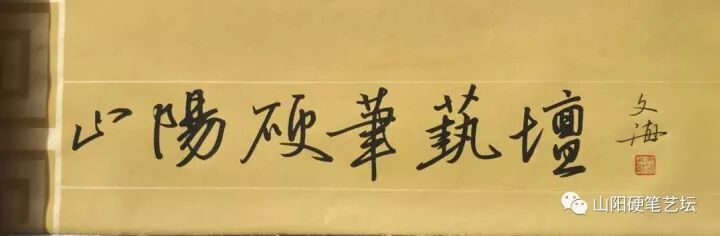 山陽硬筆藝壇
文海
山阳硬笔艺坛